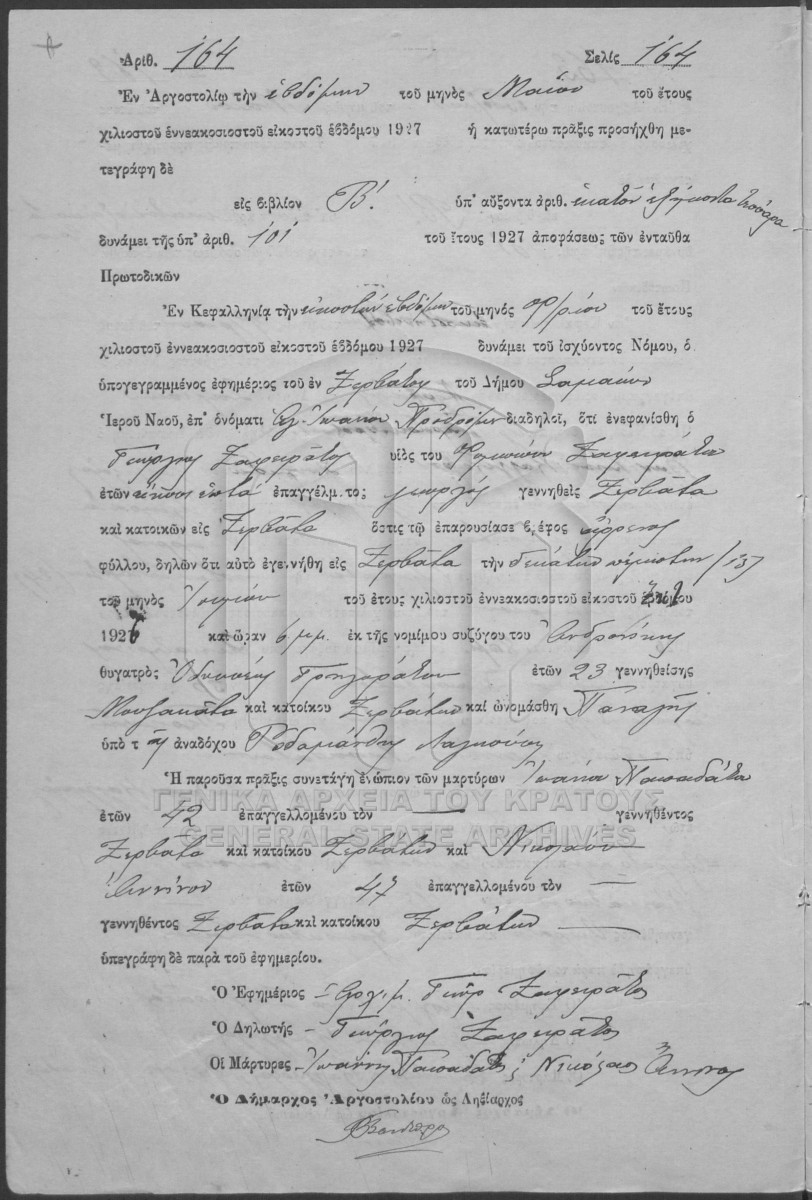 Ἀριθ. 164 Σελὶς 164
Ἐν Ἀργοστολίῳ τὴν ἑβδόμην τοῦ μηνὸς Μαΐου τοῦ ἔτους
χιλιοστοῦ ἐννεακοσιοστοῦ εἰκοστοῦ ἑβδόμου 1927 ἡ κατωτέρω πρᾶξις προσήχθη με-
τεγράφη δὲ
εἰς βιβλίον Β΄. ὑπ' αὔξοντα ἀριθ. ἑκατὸν ἑξήκοντα τέσσαρα
δυνάμει τῆς ὑπ' ἀριθ. 101 τοῦ ἔτους 1927 ἀποφάσεως τῶν ἐνταῦθα
Πρωτοδικῶν
Ἐν Κεφαλληνίᾳ τὴν εἰκοστὴν ἑβδόμην τοῦ μηνός Φ/ρίου τοῦ ἔτους
χιλιοστοῦ ἐννεακοσιοστοῦ εἰκοστοῦ ἑβδόμου 1927 δυνάμει τοῦ ἰσχύοντος Νόμου, ὁ
ὑπογεγραμμένος ἐφημέριος τοῦ ἐν Ζερβάτοις τοῦ Δήμου Σαμαίων
Ἱεροῦ Ναοῦ, ἐπ' ὀνόματι Ἁγ. Ἰωάννου Προδρόμου διαδηλοῖ, ὅτι ἐνεφανίσθη ὁ
Γεώργιος Ζαφειράτος υἱὸς του Ζαφειράτου
ἐτῶν εἴκοσι ἑπτά ἐπαγγέλμ. το; γεωργός γεννηθεὶς Ζερβάτα
καὶ κατοικῶν εἰς Ζερβάτα ὅστις τῷ ἐπαρουσίασε βρέφος ἄρρενος
φύλλου, δηλῶν ὅτι αὐτὸ ἐγεννήθη εἰς Ζερβάτα τὴν δεκάτην πέμπτην /15/
τοῦ μηνὸς τοῦ ἔτους χιλιοστοῦ ἐννεακοσιοστοῦ εἰκοστοῦ
1926 καὶ ὥραν 6 μ.μ. ἐκ τῆς νομίμου συζύγου του Ἀνδρονίκης
θυγατρὸς Ὀδυσσέως Γρηγοράτου ἐτῶν 23 γεννηθείσης
Μουζακάτα καὶ κατοίκου Ζερβάτων καί ὠνομάσθη Παναγῆς
ὑπὸ τ ῆς ἀναδόχου Ροδαμάνθης
Ἡ παροῦσα πρᾶξις συνετάγη ἐνώπιον τῶν μαρτύρων Ἰωάννου Παπαδάτου
ΓΕΝΙΚΑ ΑΡΧΕΙΑ ΤΟΥ ΚΡΑΤΟΥΣ
ἐτῶν 42 ἐπαγγελλομένου τὸν — γεννηθέντος
GENERAL STATE ARCHIVES
Ζερβάτα καὶ κατοίκου Ζερβάτων καὶ Νικολάου
Ἀννίνου ἐτῶν 47 ἐπαγγελλομένου τὸν —
γεννηθέντος Ζερβάτα καὶ κατοίκου Ζερβάτων —
ὑπεγράφη δὲ παρὰ τοῦ ἐφημερίου.
Ὁ Ἐφημέριος – Γεώρ Ζαφειράτος
Ὁ Δηλωτής – Γεώργιος Ζαφειράτος
Οἱ Μάρτυρες – Ἰωάννης Παπαδάτος, Νικόλαος Ἄννινος
Ὁ Δήμαρχος Ἀργοστολίου ὡς Ληξίαρχος